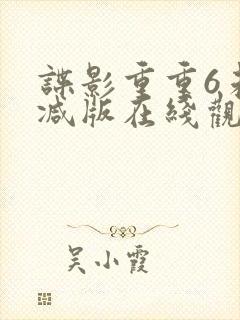 諜影重重6未
减版在綫觀
吴小霞